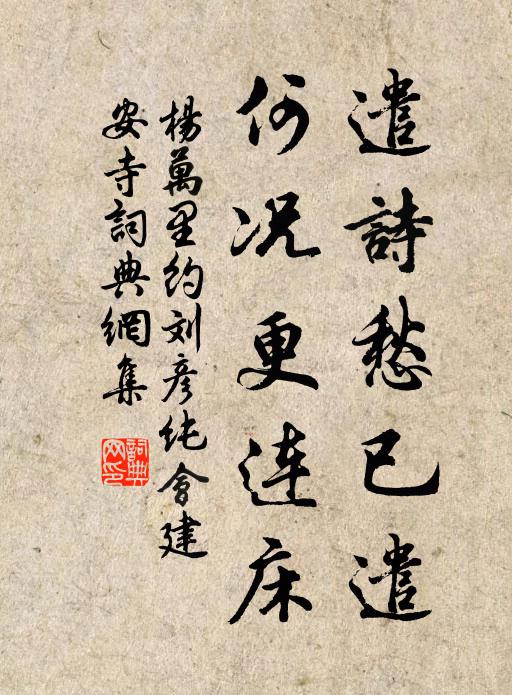 遣詩愁已遣
何况更连床
楊萬里约刘彦纯會建
安寺詞典網集
詞典网印